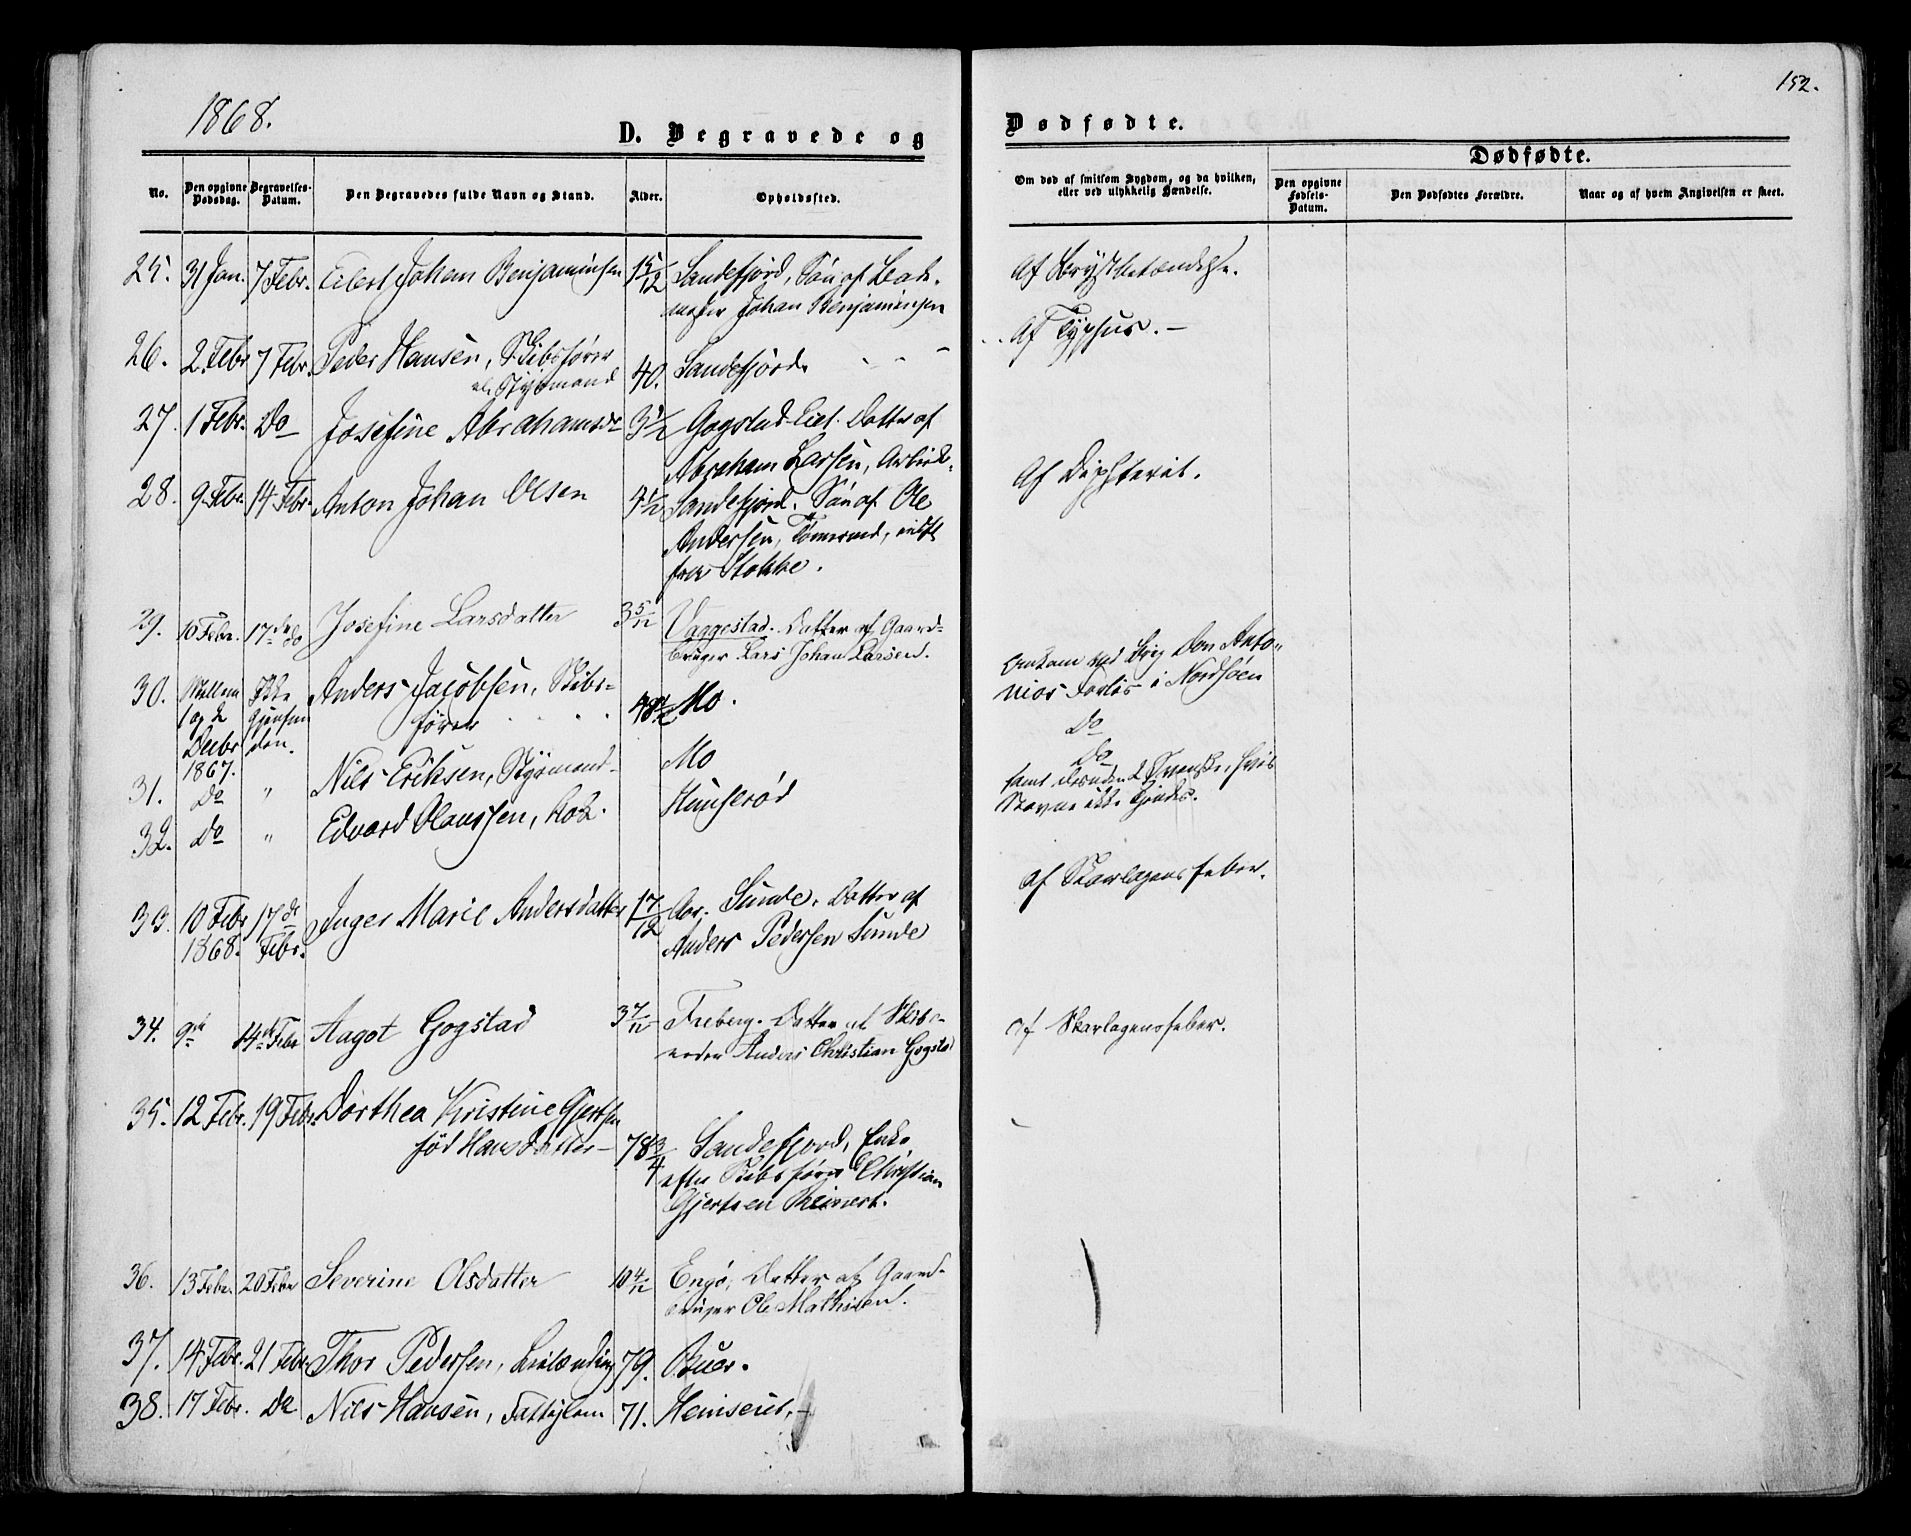 1868.
152.
D. Begravede og
Dødfødte.
Dødfødte.
No.
Den opgivne Dødsdag.
Begravelses-Datum.
Den Begravedes fulde Navn og Stand.
Alder.
Opholdssted.
Om død af smitsom Sygdom, og da hvilken,
eller ved ulykkelig Hændelse.
Den opgivne Fødsels-Datum.
Den Dødfødtes Forældre.
Naar og af hvem Angivelsen er skeet.
25. 31 Jan. 7 Febr. Eilert Johan Benjaminsen 15/12 Sandefjord, Søn af
Johan Benjaminsen
Af Brystbetændelse.
26. 2 Febr 7 Febr. Peder Hansen, Skibsfører
Styrmand 40. Sandefjord.
Af Typhus.
27. 1 Febr. Do Josefine Abrahamsdr 3 1/2 Gogstad Eiet. Datter af
Abraham Larsen, Arbeid.
28. 9 Febr. 14 Febr. Anton Johan Olsen Sandefjord. Søn af Ole
Andersen, Tømmermd, indfl
fra Stokke.
Af Diphterit.
29. 10 Febr. 17de do Josefine Larsdatter 3 5/12 Vaggestad. Datter af Gaard-
bruger Lars Johan Larsen.
30. Mellem
1 og 2
Decbr
1867. Ikke
gjenfun
den. Anders Jacobsen, Skibs-
fører Mo.
Omkom ved Brig Don Anto-
nios Forlis i Nordsøen
31. Do " Nils Eriksen, Styrmand. Mo
Do
32. Do " Edvard Olaussen, Kok. Hunserød
Do
samt desuden 2 Svenske, hvis
Navne ikke kjendes.
33. 10 Febr
1868. 17de
Febr. Inger Marie Andersdatter 17/12 Aar. Sunde. Datter af
Anders Pedersen Sunde
af Skarlagensfeber.
34. 9de 14de Febr Aagot Gogstad 3 7/12 Freberg. Datter af Skibs-
reder Anders Christian Gogstad
af Skarlagensfeber.
35. 12 Febr. 19 Febr. Dorthea Kristine Gjertsen
født Hansdatter 78 3/4 Sandefjord, Enke
efter Skibsfører Christian
Gjertsen Reinert.
36. 13 Febr. 20 Febr Severine Olsdatter 10 4/12 Engø, Datter af Gaard-
bruger Ole Mathisen.
37. 14 Febr. 21 Febr Thor Pedersen, Leilænding 79. Buer.
38. 17 Febr. Do Nils Hansen, Fattiglem 71. Hemserei.